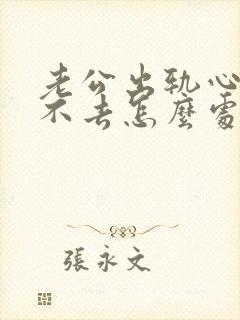 老公出轨心
不去怎麼處
張永文